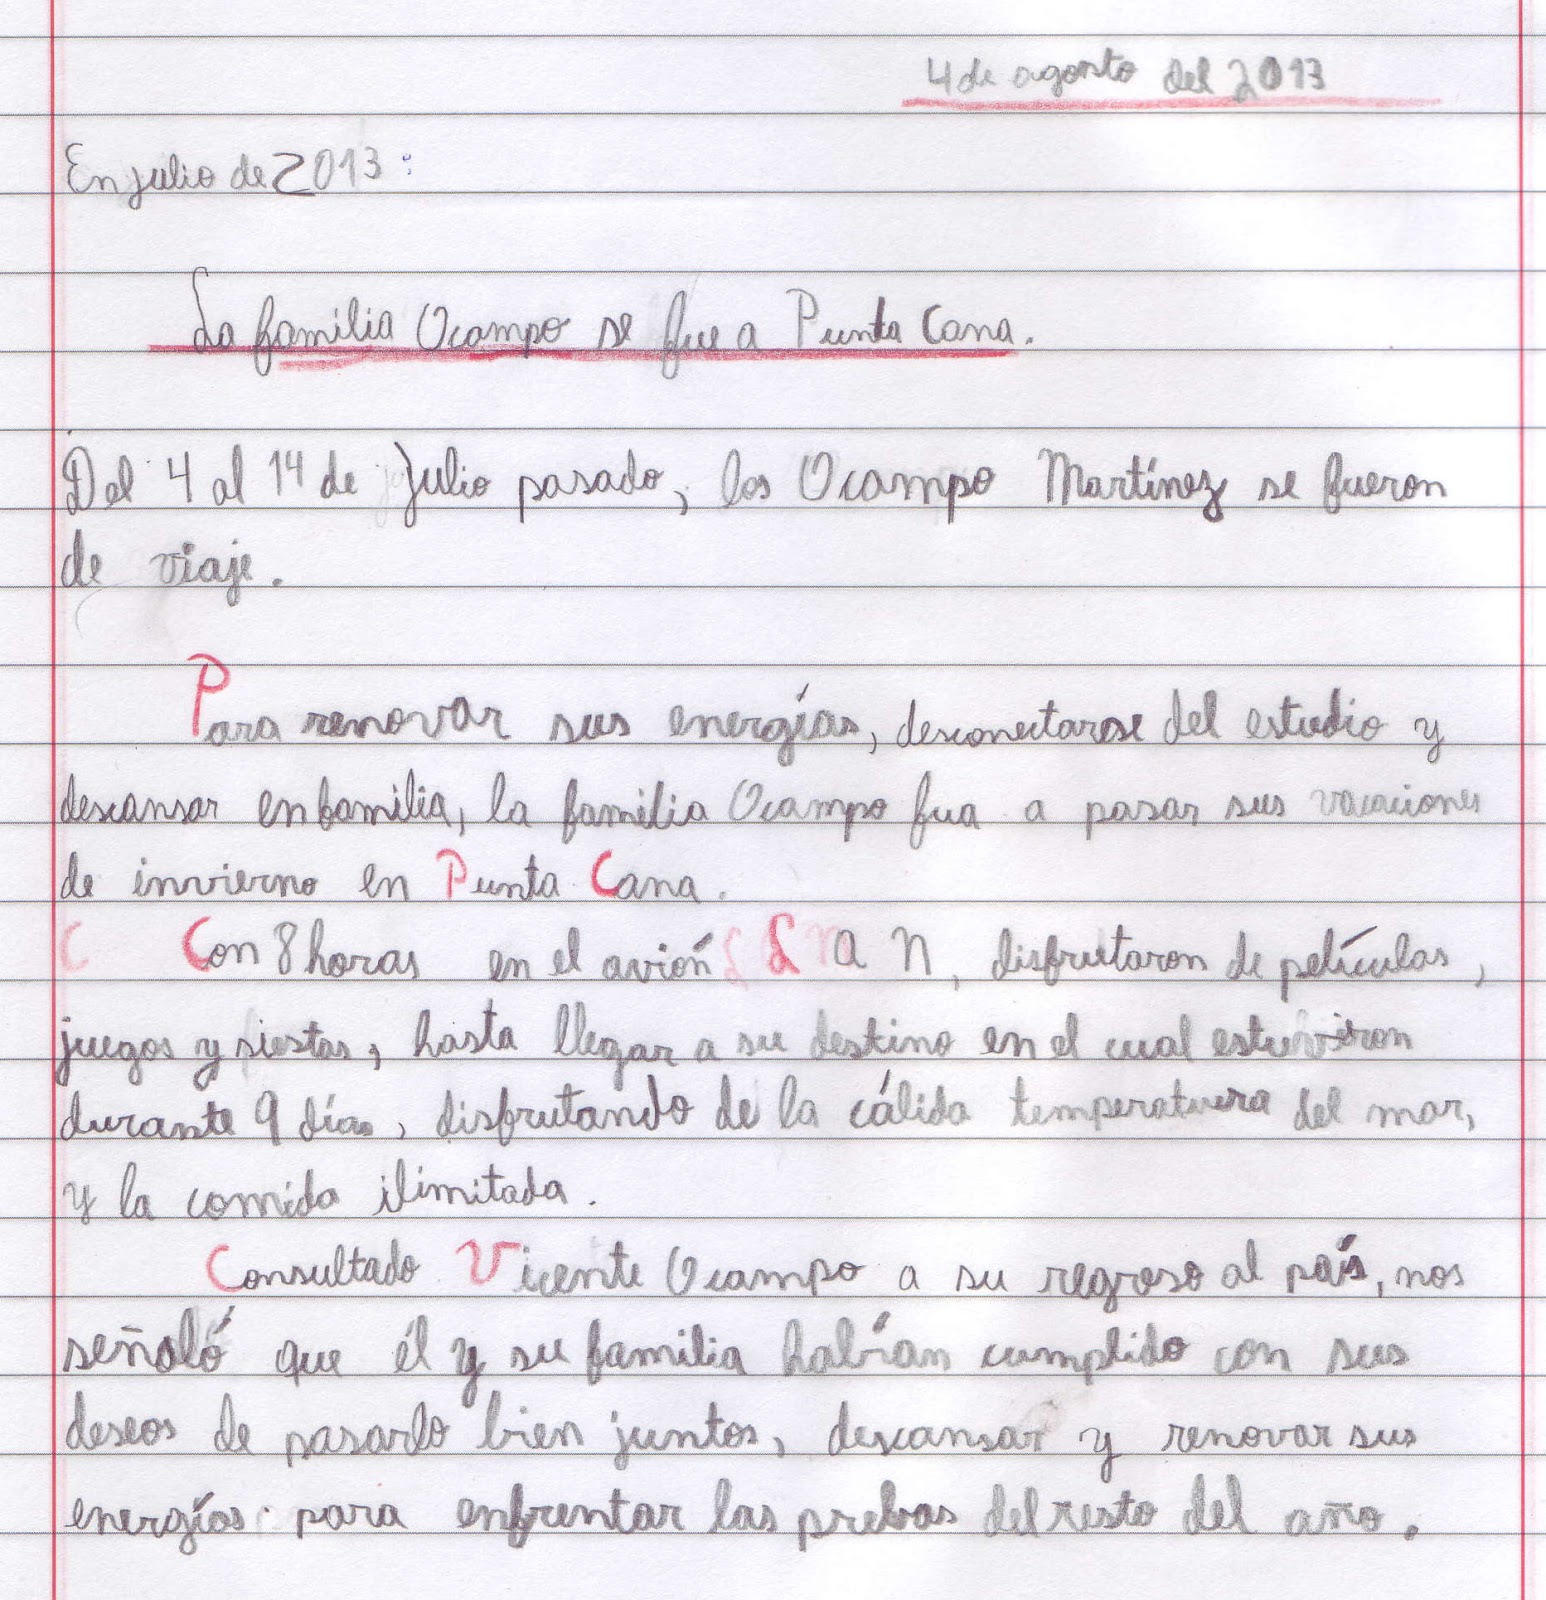 4 de agosto del 2013
En julio de 2013:
La familia Ocampo se fue a Punta Cana.
Del 4 al 14 de Julio pasado, los Ocampo Martínez se fueron
de viaje.
Para renovar sus energías, desconectarse del estudio y
descansar en familia, la familia Ocampo fua a pasar sus vacaciones
de invierno en Punta Cana.
Con 8 horas en el avión L a n, disfrutaron de películas,
juegos y siestas, hasta llegar a su destino en el cual estuvieron
durante 9 días, disfrutando de la cálida temperatura del mar,
y la comida ilimitada.
Consultado Vicente Ocampo a su regreso al país, nos
señaló que él y su familia habían cumplido con sus
deseos de pasarlo bien juntos, descansar y renovar sus
energías para enfrentar las prebas del resto del año.